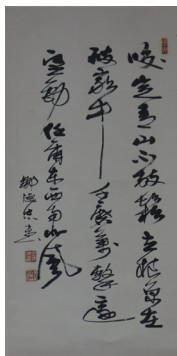 咬定青山不放鬆立根原在
破岩中千磨萬擊還
堅勁任爾東西南北風